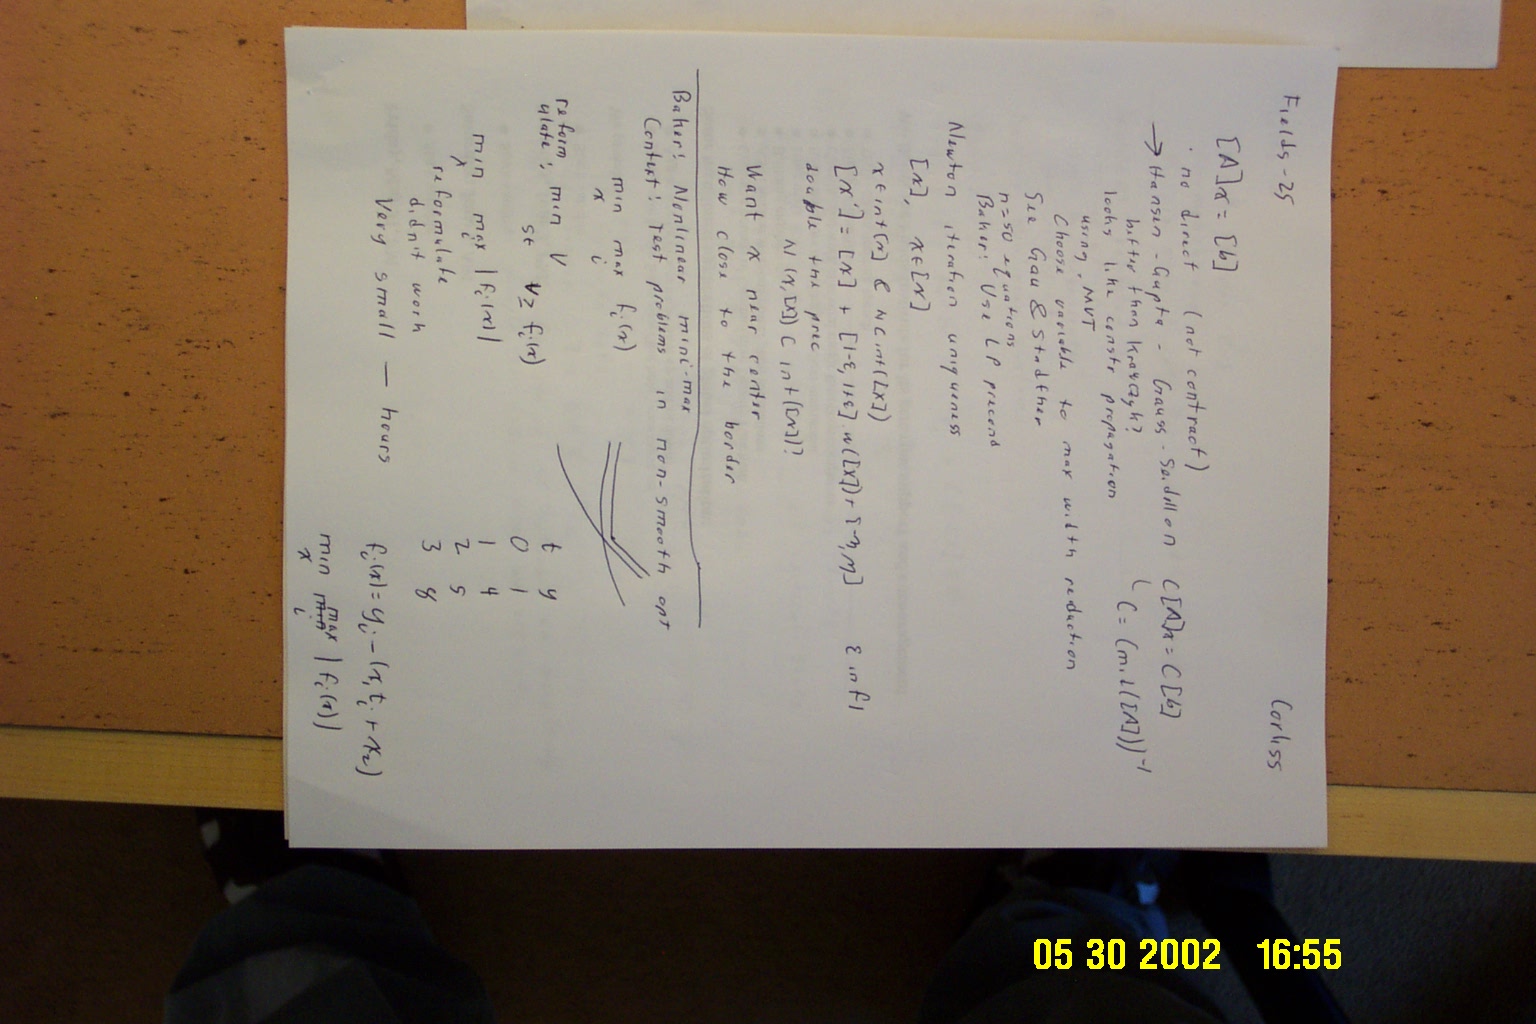 Fields-25 Corliss
[A]x = [b]
· no direct (not contract)
→ Hansen-Gupta - Gauss-Seidel on C[A]x = C[b]
better than Krawczyk? C = (mid([A]))⁻¹
looks like constr propagation
using MVT
Choose variable to max width reduction
See Gau & Stadtherr
n=50 equations
Baker: Use LP precond
Newton iteration uniqueness
[x], x∈[x]
x∈int[x] & N⊂int([x])
[x'] = [x] + [1-ε, 1+ε] w([x]) + [-η, η] ε infl
double the prec
N(x,[x]) ⊂ int([x])?
Want x near center
How close to the border
Baker: Nonlinear mini-max
Context: Test problems in non-smooth opt
min max fᵢ(x)
x i
reform
ulate: min v
st v ≥ fᵢ(x)
min max |fᵢ(x)|
x i
reformulate
didn't work
Very small — hours
t y
0 1
1 4
2 5
3 8
fᵢ(x) = yᵢ - (x₁tᵢ + x₂)
min max |fᵢ(x)|
x i
05 30 2002 16:55